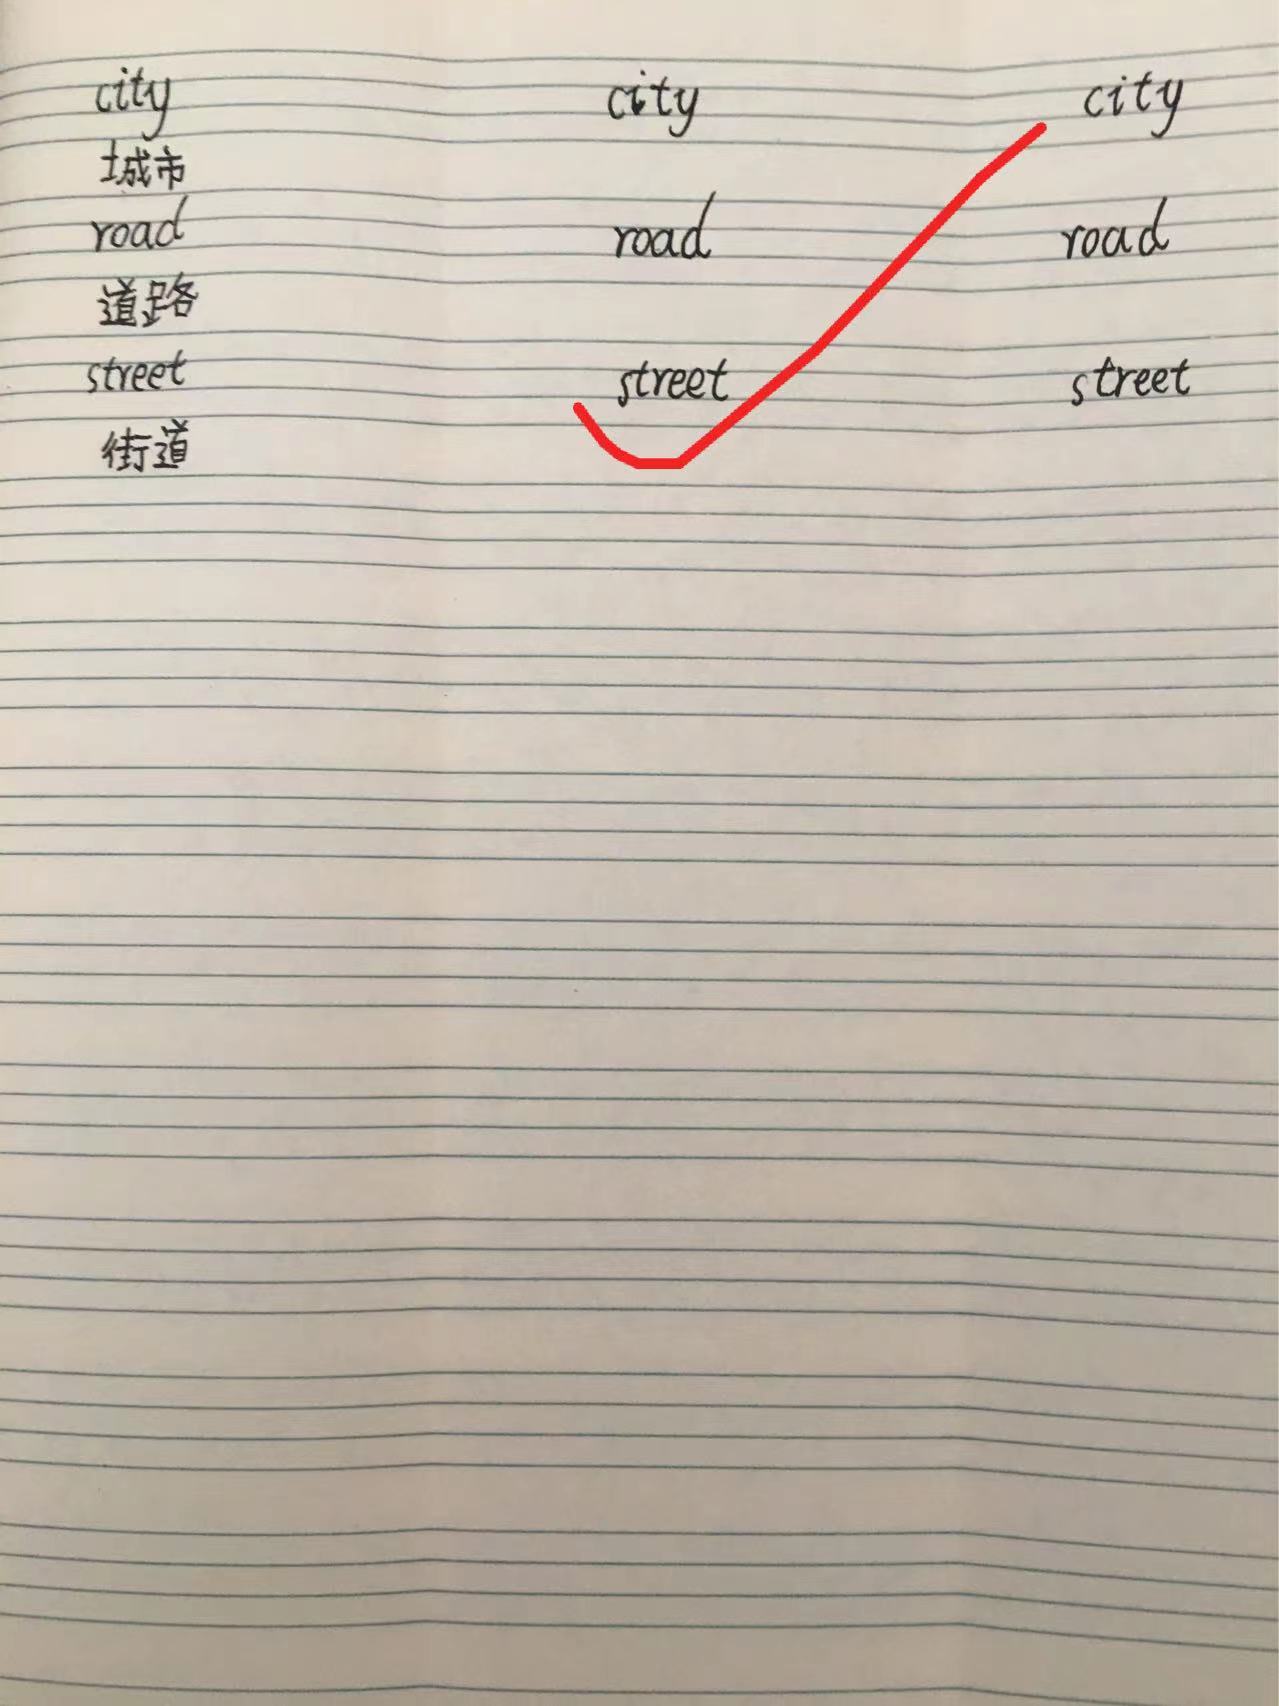 city city city
城市
road road road
道路
street street street
街道